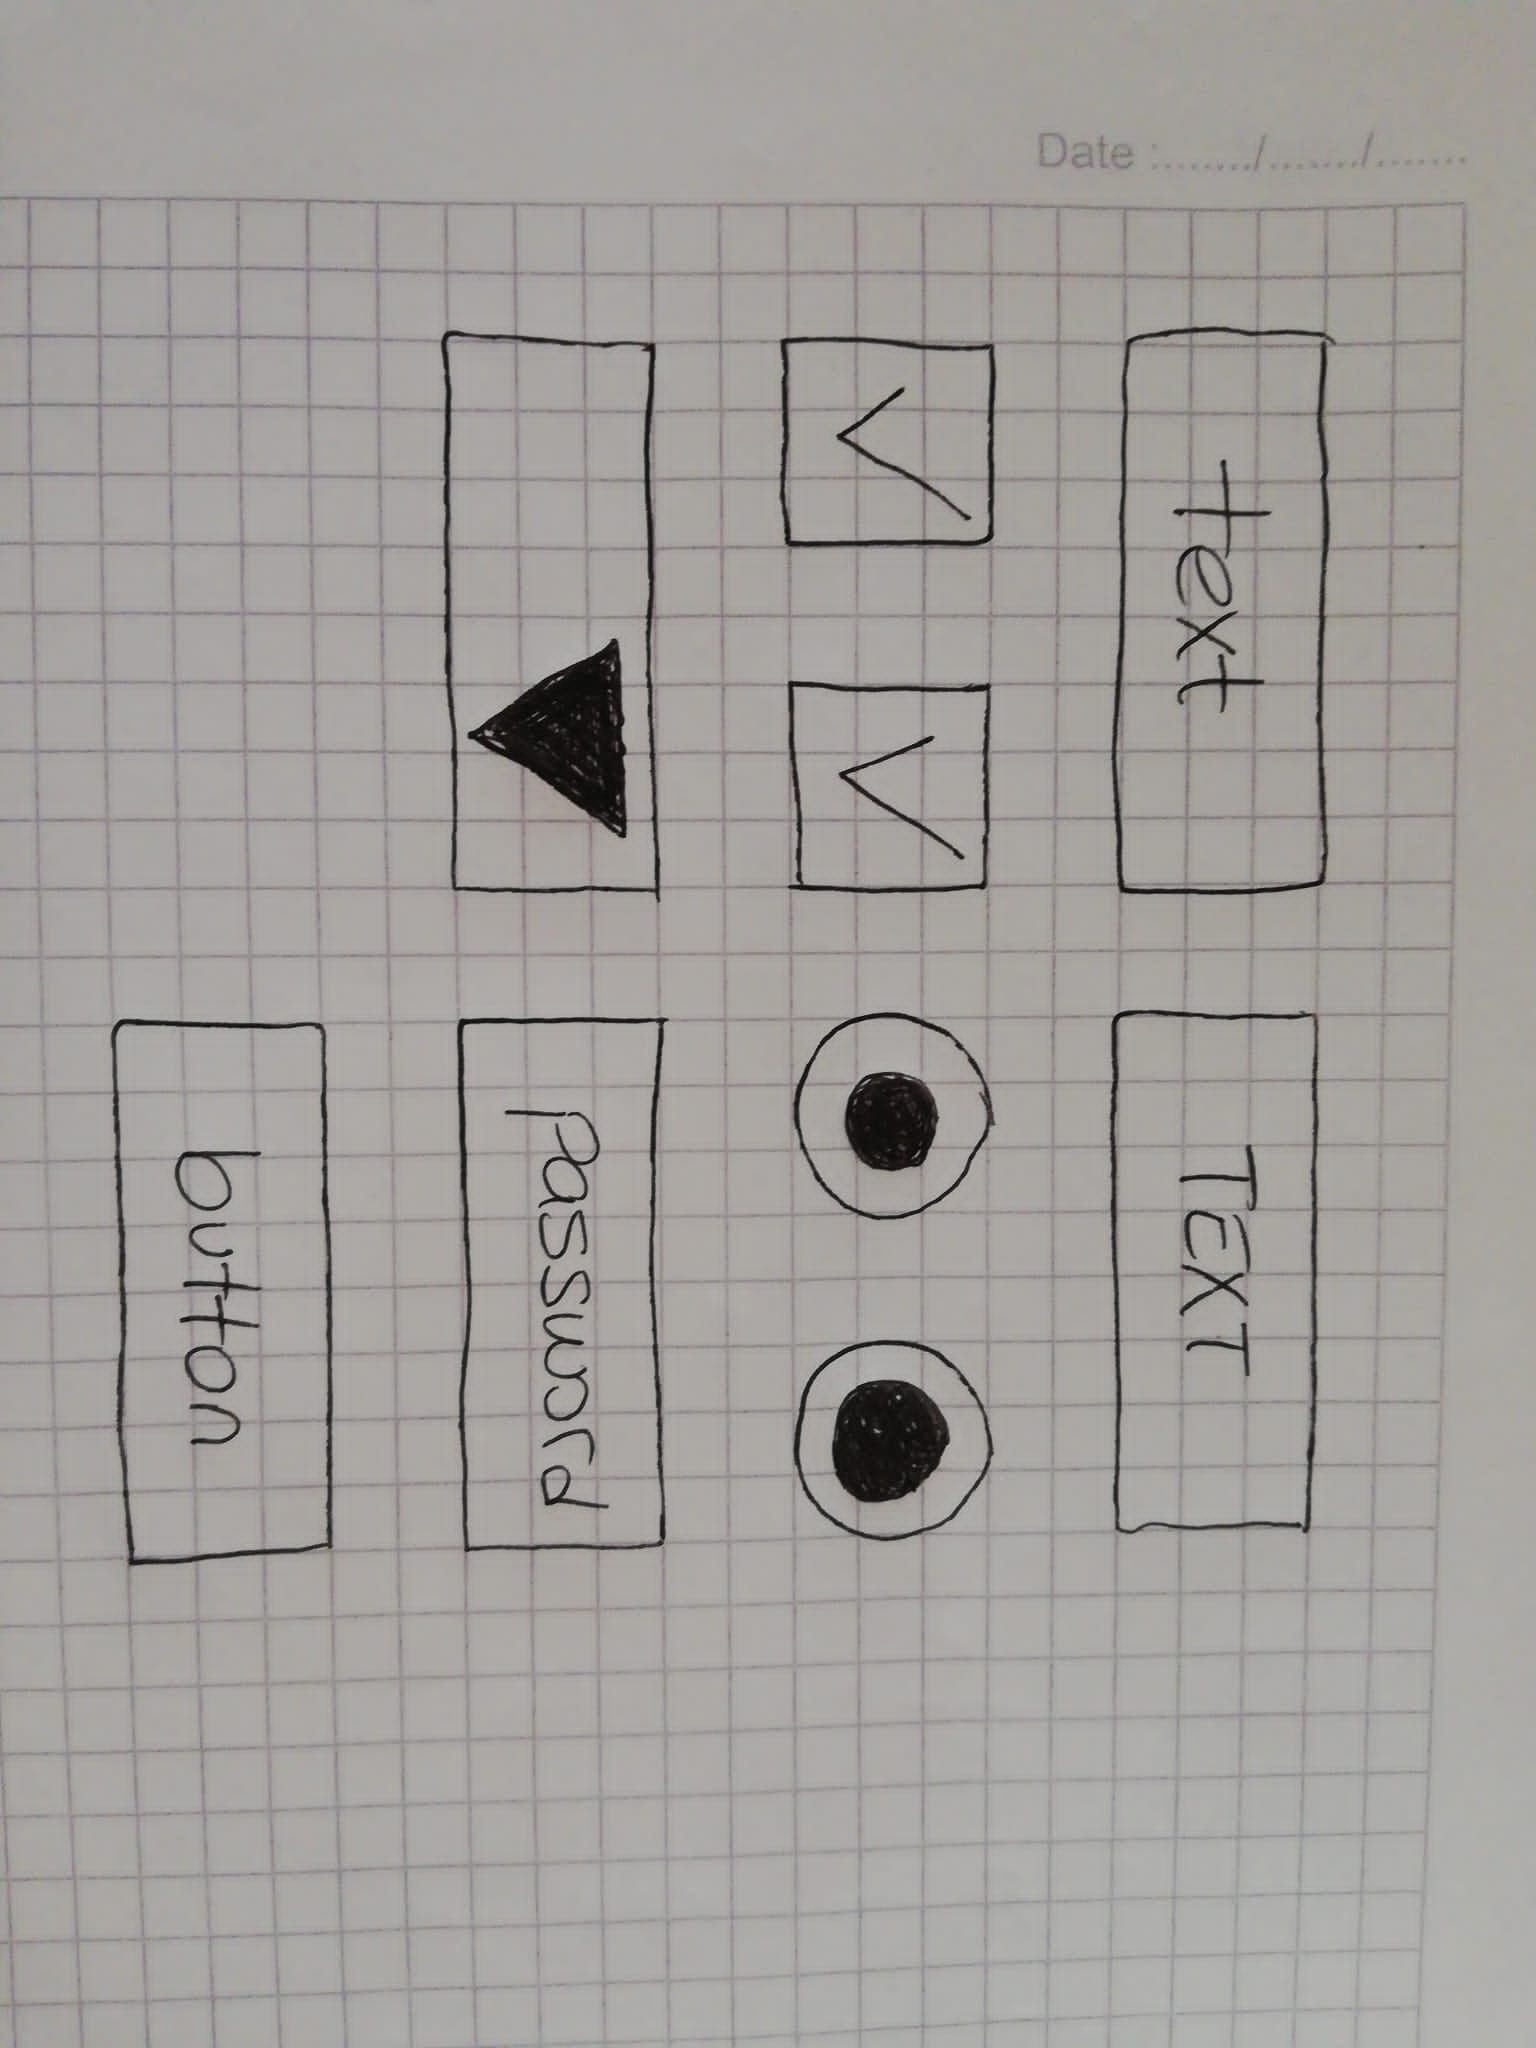 Date :......../......./.......
text TEXT
password
button